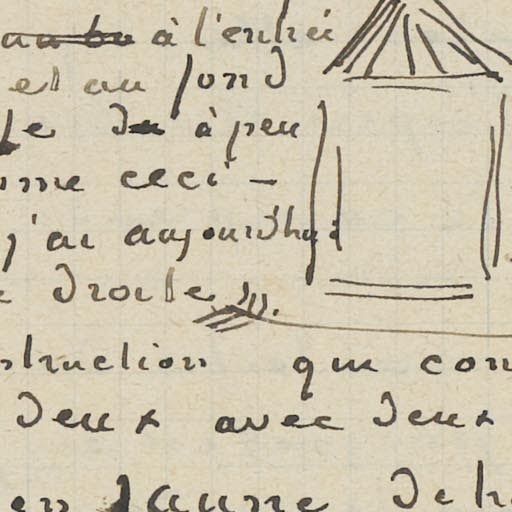 à l'entrée
et au fond
à peu
me ceci —
j'ai aujourd'hui
droite
struction que con
deux avec deux
en jaune de